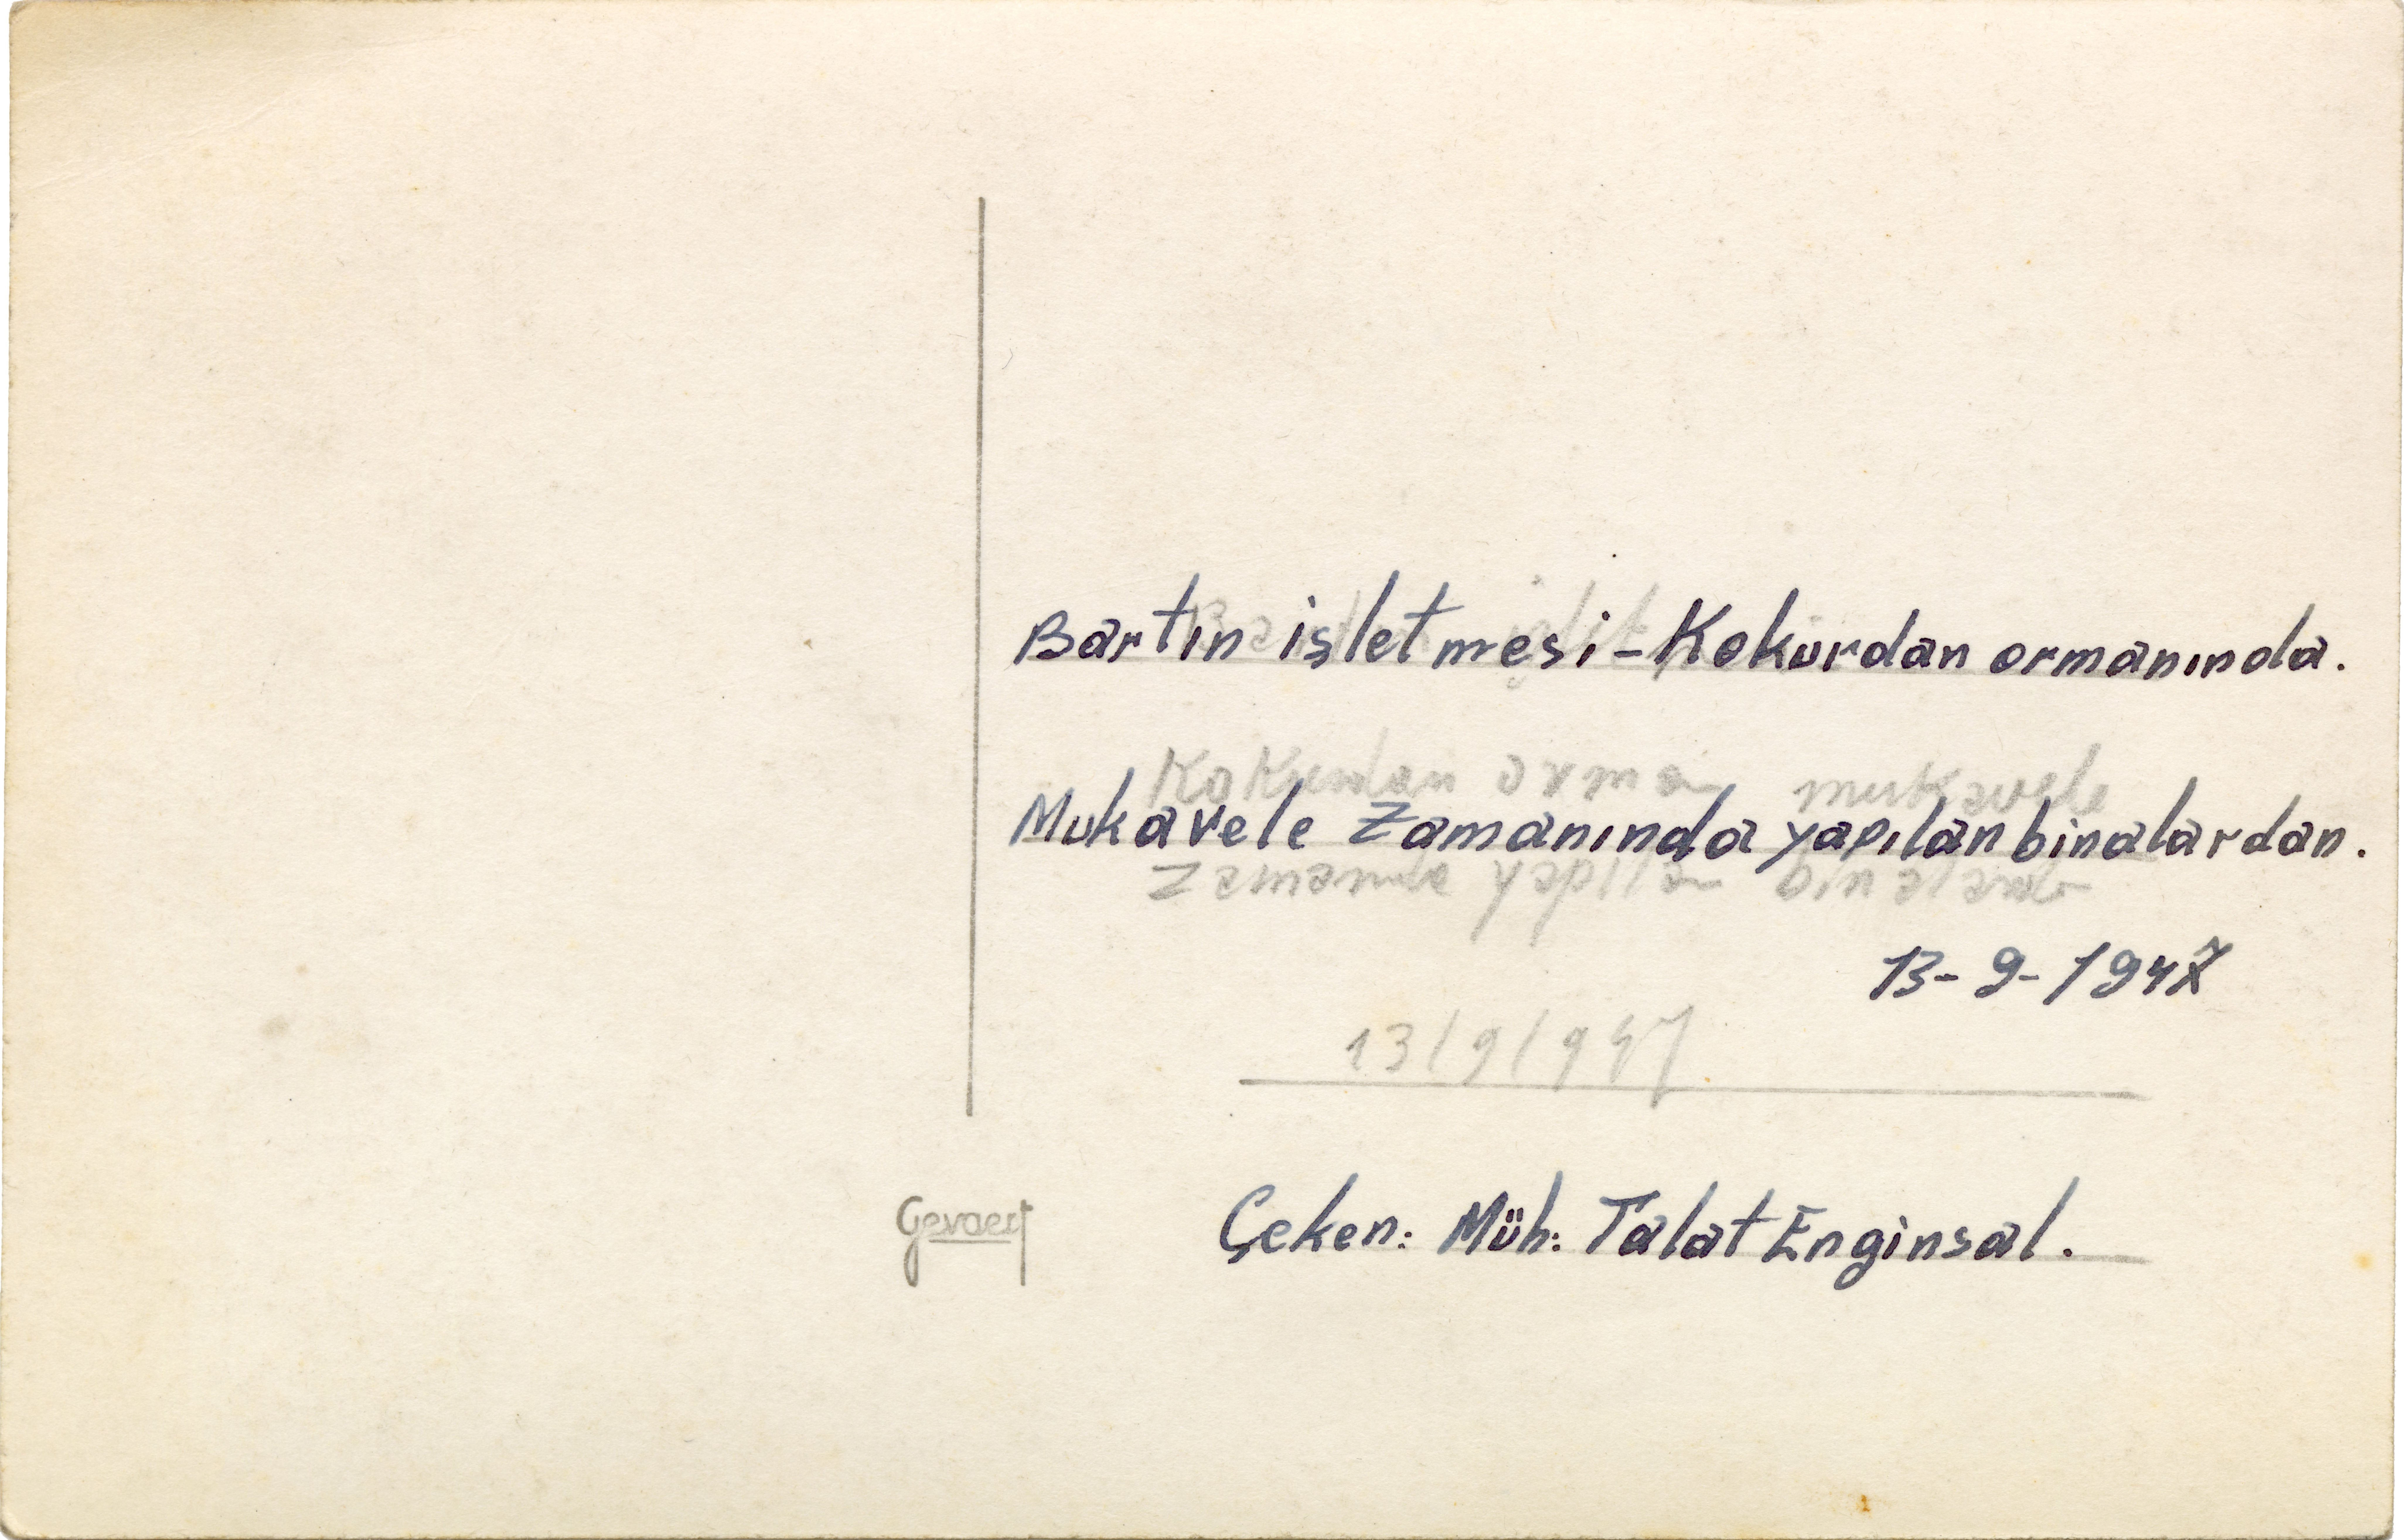 Bartın işletmesi - Kokurdan ormanında.
Kokurdan orman mukavele
Mukavele Zamanında yapılan binalardan.
zamanında yapılan
13-9-1947
13/9/947
Gevaert
Çeken: Müh: Talat Enginsal.